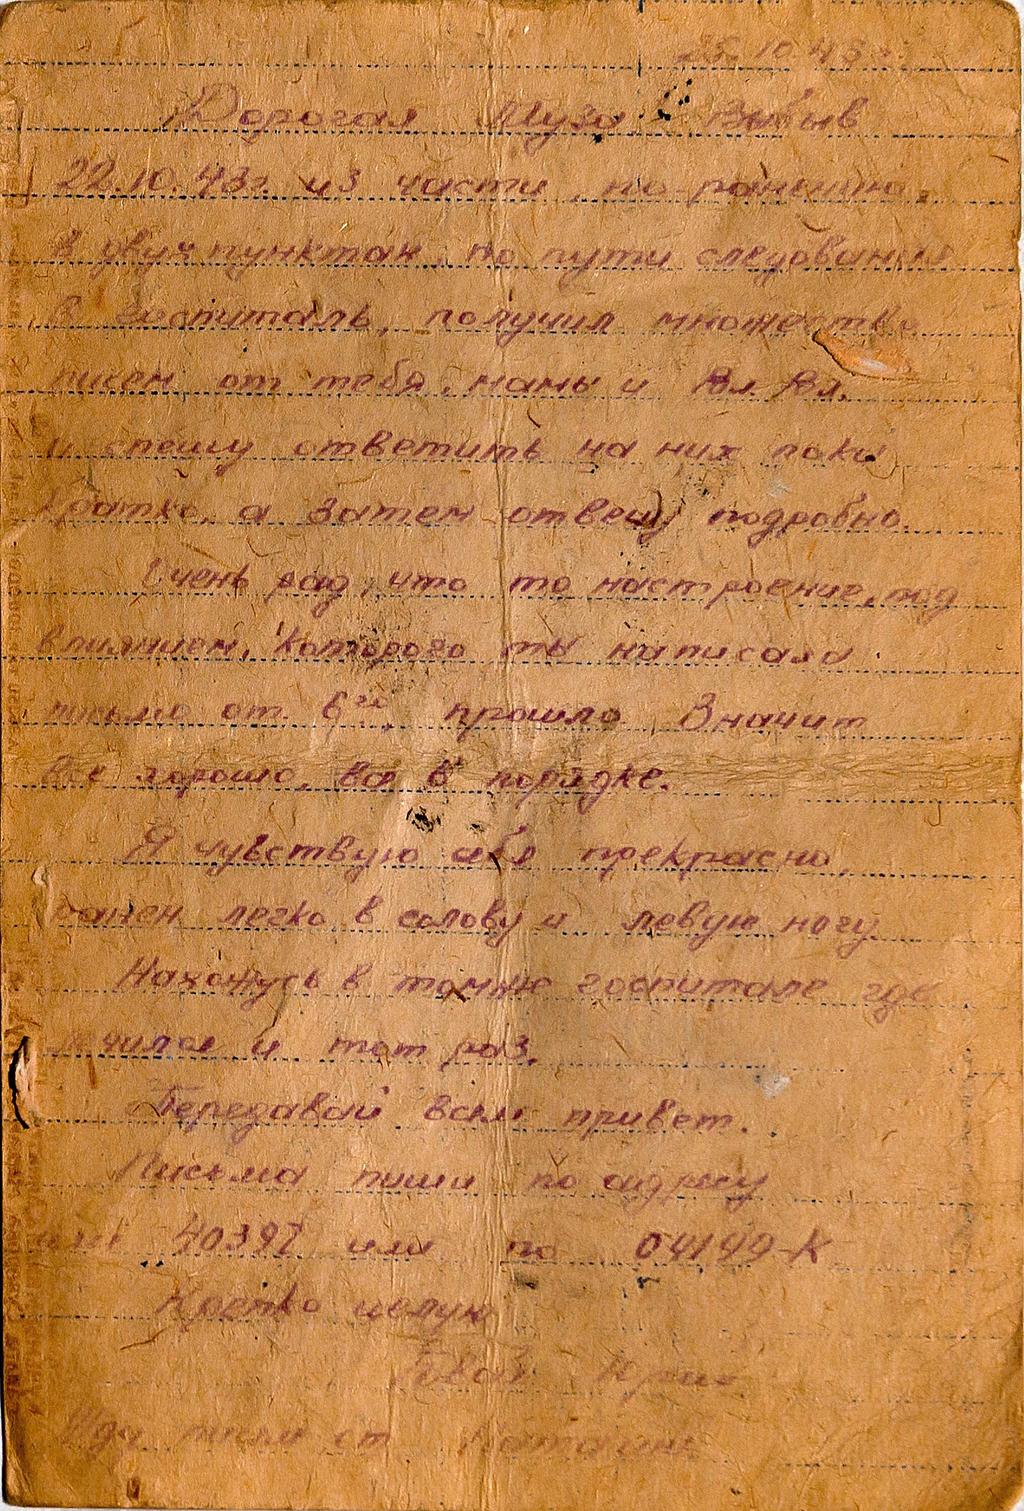 25.10.43 г.
Дорогая Муза! Выбыв
22.10.43 г. из части, по ранению,
в двух пунктах, по пути следования
в госпиталь, получил множество
писем от тебя, мамы и Вл. Вл.
и спешу ответить на них пока
кратко, а затем отвечу подробно.
Очень рад, что то настроение, под
влиянием, которого ты написала
письмо от 6го, прошло. Значит
все хорошо, все в порядке.
Я чувствую себя прекрасно,
ранен легко в голову и левую ногу.
Нахожусь в том же госпитале где
лечился и тот раз.
Передавай всем привет.
Письма пиши по адресу
40392 или по 04199-К
Крепко целую
Твой
Жду писем от